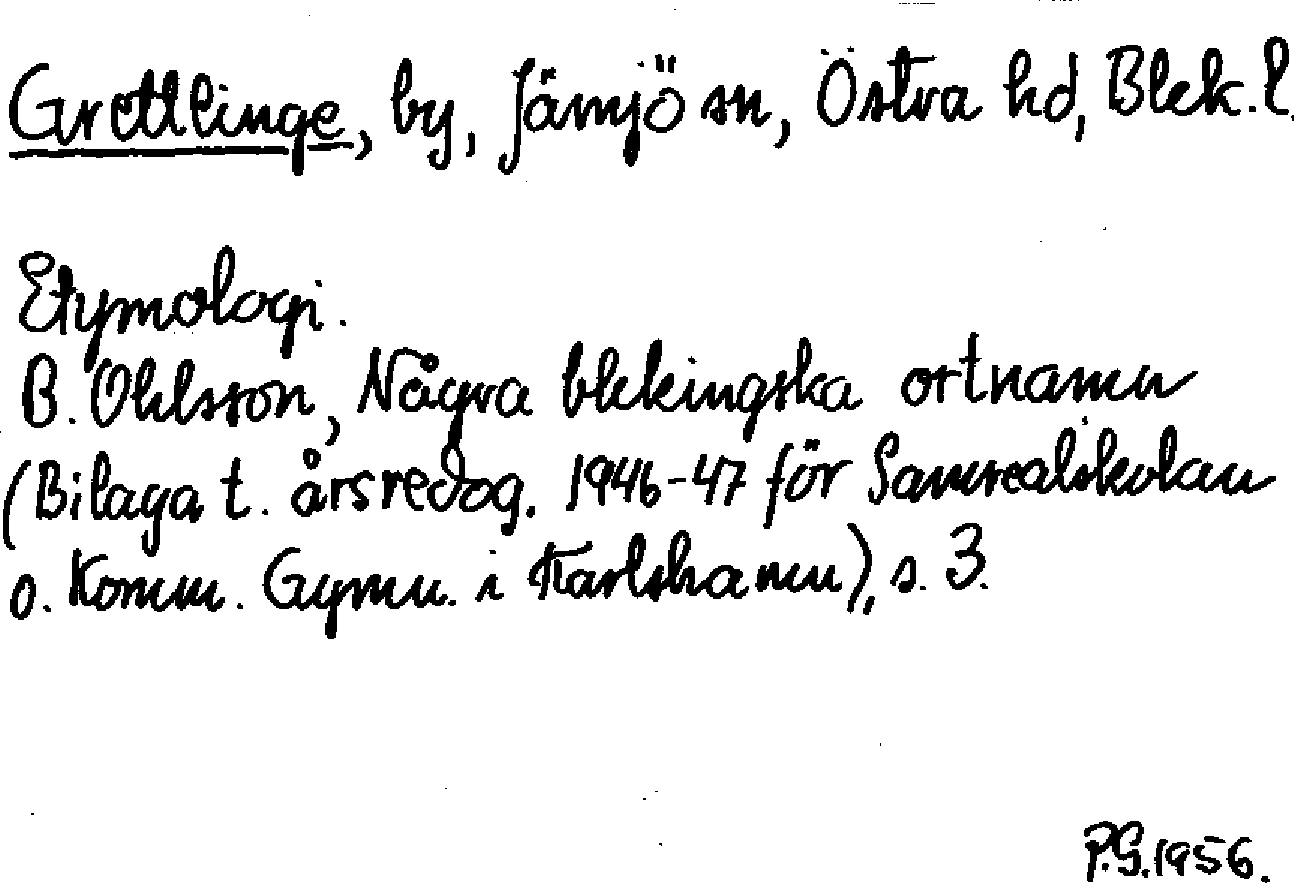 Grettlinge, by, Jämjö sn, Östra hd, Blek. l.
Etymologi.
B. Ohlsson, Några blekingska ortnamn
(Bilaga t. årsredog. 1946-47 för Samrealskolan
o. Komm. Gymn. i Karlshamn), s. 3.
P.G. 1956.